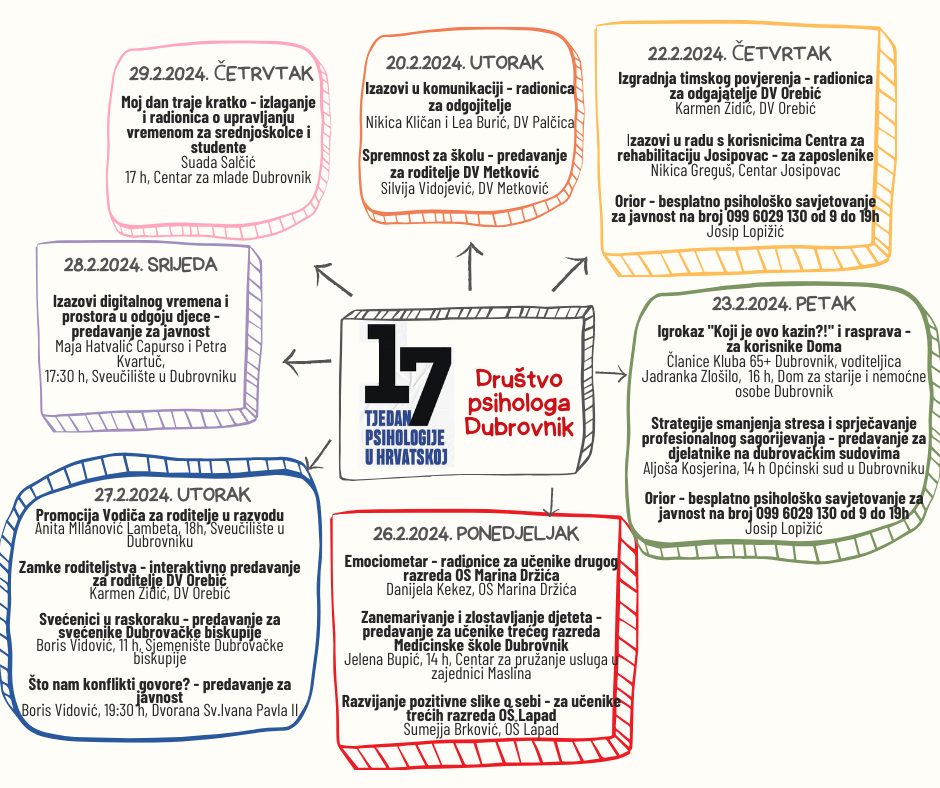 29.2.2024. ČETRVTAK
Moj dan traje kratko - izlaganje
i radionica o upravljanju
vremenom za srednjoškolce i
studente
Suada Salčić
17 h, Centar za mlade Dubrovnik
20.2.2024. UTORAK
Izazovi u komunikaciji - radionica
za odgojitelje
Nikica Kličan i Lea Burić, DV Palčica
Spremnost za školu - predavanje
za roditelje DV Metković
Silvija Vidojević, DV Metković
22.2.2024. ČETVRTAK
Izgradnja timskog povjerenja - radionica
za odgajatelje DV Orebić
Karmen Židić, DV Orebić
Izazovi u radu s korisnicima Centra za
rehabilitaciju Josipovac - za zaposlenike
Nikica Greguš, Centar Josipovac
Orior - besplatno psihološko savjetovanje
za javnost na broj 099 6029 130 od 9 do 19h
Josip Lopižić
28.2.2024. SRIJEDA
Izazovi digitalnog vremena i
prostora u odgoju djece -
predavanje za javnost
Maja Hatvalić Capurso i Petra
Kvartuč,
17:30 h, Sveučilište u Dubrovniku
17
TJEDAN
PSIHOLOGIJE
U HRVATSKOJ
Društvo
psihologa
Dubrovnik
23.2.2024. PETAK
Igrokaz "Koji je ovo kazin?!" i rasprava -
za korisnike Doma
Članice Kluba 65+ Dubrovnik, voditeljica
Jadranka Zlošilo, 16 h, Dom za starije i nemoćne
osobe Dubrovnik
Strategije smanjenja stresa i sprječavanje
profesionalnog sagorijevanja - predavanje za
djelatnike na dubrovačkim sudovima
Aljoša Kosjerina, 14 h Općinski sud u Dubrovniku
Orior - besplatno psihološko savjetovanje za
javnost na broj 099 6029 130 od 9 do 19h
Josip Lopižić
27.2.2024. UTORAK
Promocija Vodiča za roditelje u razvodu
Anita Milanović Lambeta, 18h, Sveučilište u
Dubrovniku
Zamke roditeljstva - interaktivno predavanje
za roditelje DV Orebić
Karmen Židić, DV Orebić
Svećenici u raskoraku - predavanje za
svećenike Dubrovačke biskupije
Boris Vidović, 11 h, Sjemenište Dubrovačke
biskupije
Što nam konflikti govore? - predavanje za
javnost
Boris Vidović, 19:30 h, Dvorana Sv.Ivana Pavla II
26.2.2024. PONEDJELJAK
Emociometar - radionice za učenike drugog
razreda OŠ Marina Držića
Danijela Kekez, OŠ Marina Držića
Zanemarivanje i zlostavljanje djeteta -
predavanje za učenike trećeg razreda
Medicinske škole Dubrovnik
Jelena Bupić, 14 h, Centar za pružanje usluga u
zajednici Maslina
Razvijanje pozitivne slike o sebi - za učenike
trećih razreda OŠ Lapad
Sumejja Brković, OŠ Lapad